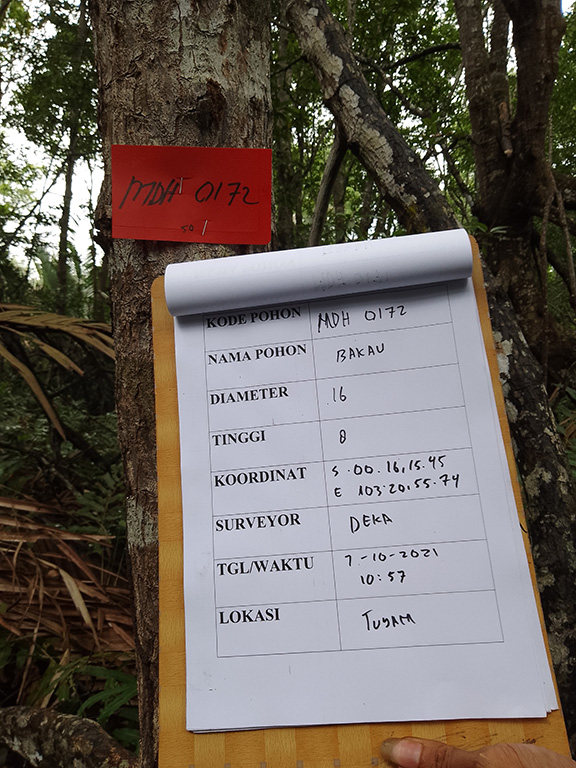 MDH 0172
50
KODE POHON MDH 0172
NAMA POHON BAKAU
DIAMETER 16
TINGGI 8
KOORDINAT S.00.16,15.45
E 103.20,55.74
SURVEYOR DEKA
TGL/WAKTU 7-10-2021
10:57
LOKASI